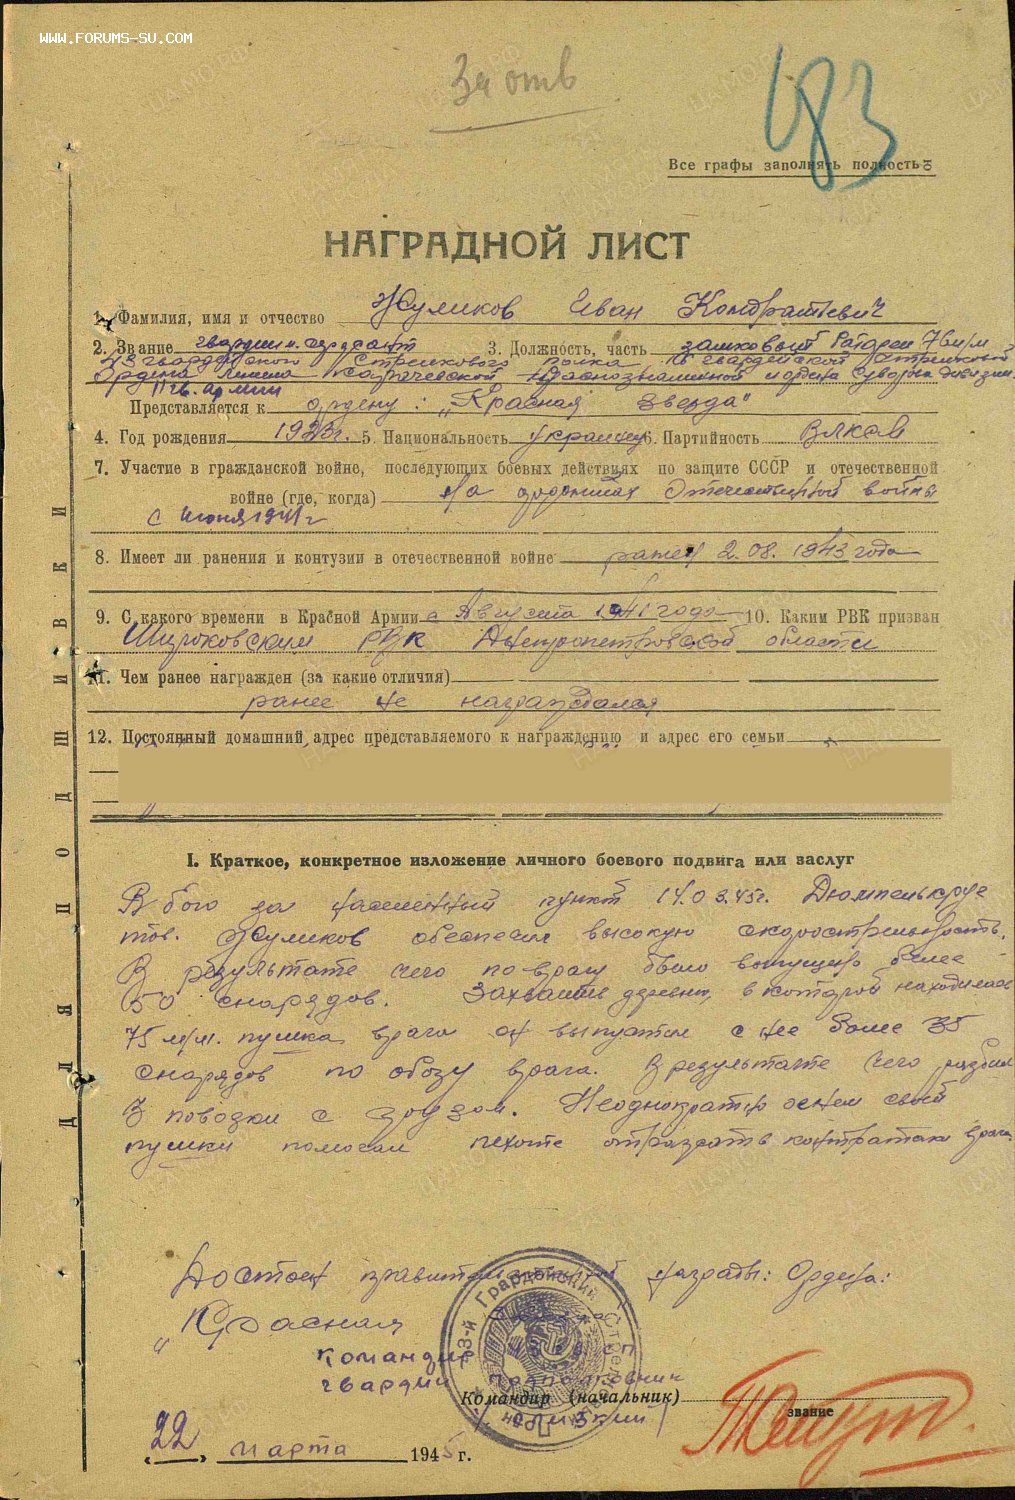 WWW.FORUMS-SU.COM
За отв
483
Все графы заполнять полностью
НАГРАДНОЙ ЛИСТ
1. Фамилия, имя и отчество Жуликов Иван Кондратьевич
2. Звание гвардии мл. сержант 3. Должность, часть замковый батареи 76 м/м
43 гвардейского Стрелкового полка 16 гвардейской стрелковой
Ордена Ленина Карачевской Краснознаменной и ордена Суворова дивизии
11 гв. армии
Представляется к ордену: „Красная Звезда"
4. Год рождения 1923г. 5. Национальность украинец 6. Партийность ВЛКСМ
7. Участие в гражданской войне, последующих боевых действиях по защите СССР и отечественной
войне (где, когда) На фронтах Отечественной войны
с июня 1941г
8. Имеет ли ранения и контузии в отечественной войне ранен 2.08.1943 года
9. С какого времени в Красной Армии с Августа 1941 года 10. Каким РВК призван
Широковским РВК Днепропетровской области
11. Чем ранее награжден (за какие отличия)
ранее не награждался
12. Постоянный домашний адрес представляемого к награждению и адрес его семьи
I. Краткое, конкретное изложение личного боевого подвига или заслуг
В бою за населенный пункт 14.03.45г. Дюмпелькруг
тов. Жуликов обеспечил высокую скорострельность.
В результате чего по врагу было выпущено более
50 снарядов. Захватив деревню, в которой находилась
75 м/м. пушка врага он выпустил с нее более 35
снарядов по обозу врага. В результате чего разбил
3 повозки с грузом. Неоднократно огнем своей
пушки помогал пехоте отражать контратаки врага
Достоин правительственной награды: Ордена:
„Красная
Командир 43 гв. сп
гвардии подполковник
Командир (начальник)
звание
22 марта 1945 г.
43-й Гвардейский Стрелковый Полк
ДЛЯ ПОДШИВКИ